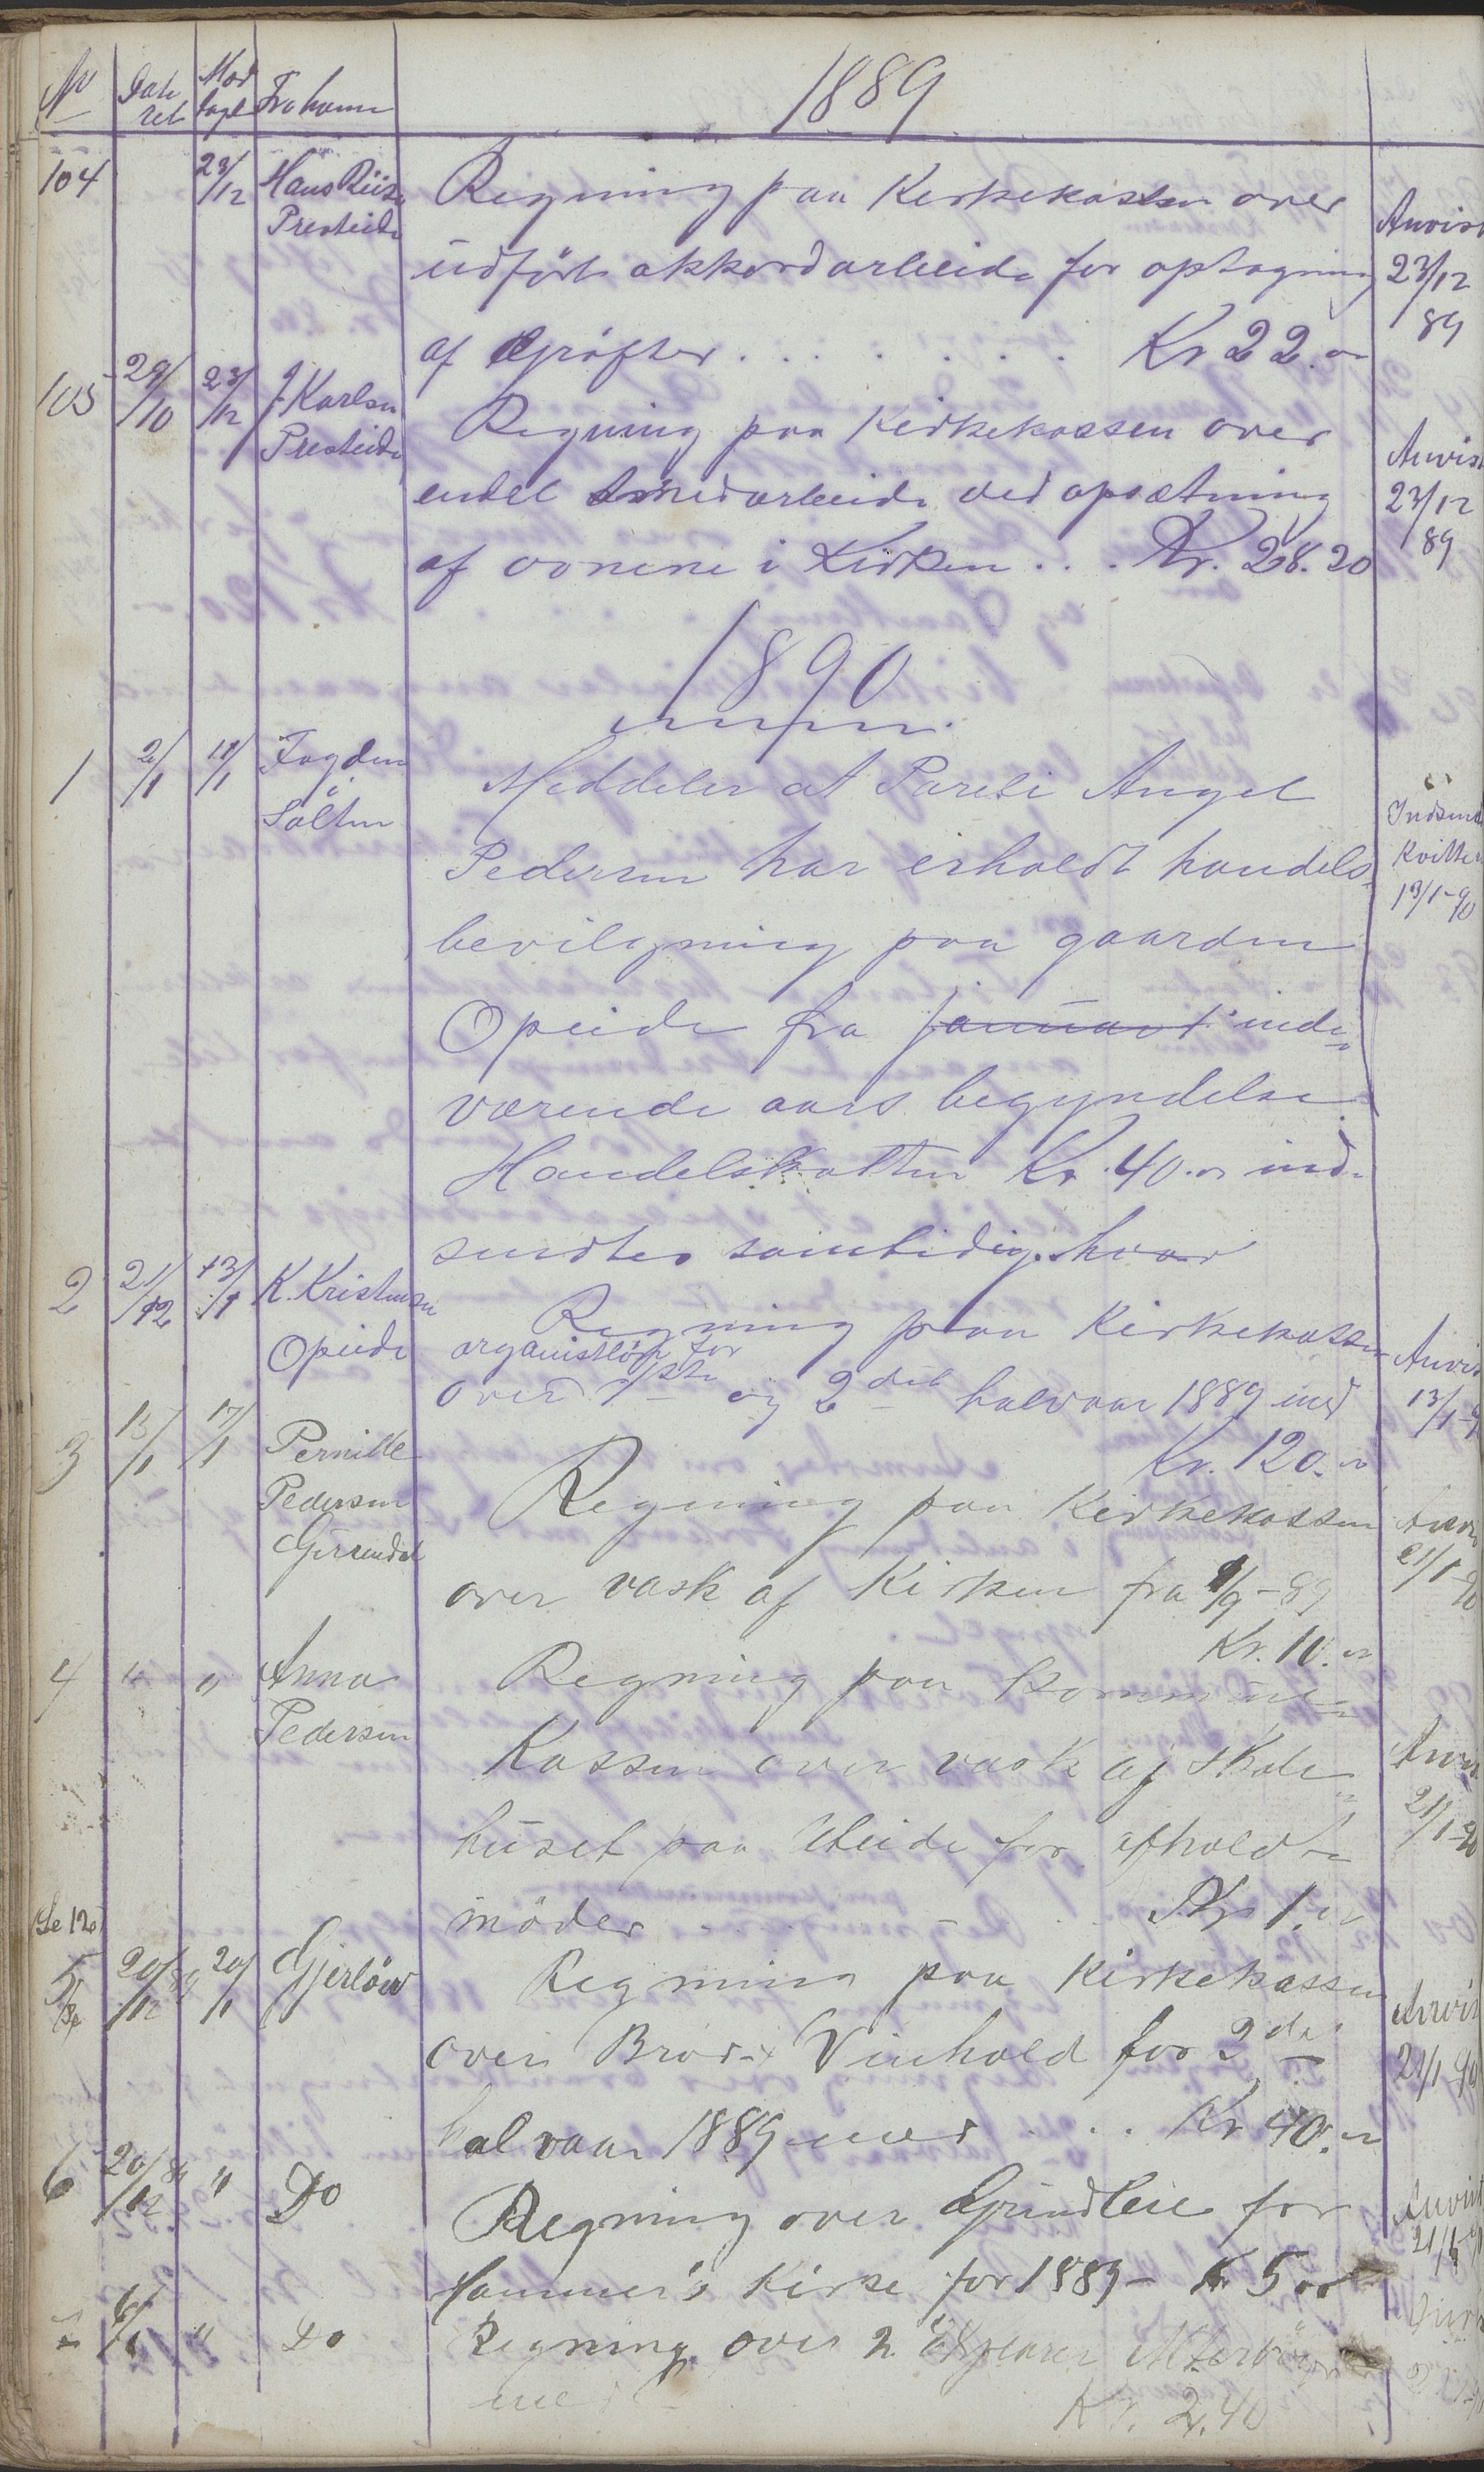 No
Date
ret
Mod
taget
Fra hvem
1889
104
23/12
Hans Riise
Presteide
Regning paa Kirkekassen over
udført akkordarbeide for optagning
af Grøfter . . . . . . . Kr 22.„
Anvist
23/12
89
105
29/10
23/12
J. Karlsen
Presteide
Regning paa Kirkekassen over
endel smedarbeide ved opsætning
af ovnene i Kirken . . . Kr. 28.20
Anvist
23/12
89
1890
1
2/1
11/1
Fogden
i
Salten
Meddeler at Pareli Angel
Pedersen har erholdt handels-
bevilgning paa gaarden
Opeide fra januar inde-
værende aars begyndelse.
Handelskatten Kr. 40.„ ind-
sendtes samtidig. hvor
Indsendt
Kvitter
13/1-90
2
21/12
13/1
K. Kristensen
Opeide
Regning paa Kirkekassen
organistløn for
over 1ste og 2det halvaar 1889 med
Kr. 120.„
Anvist
13/1-9
3
15/1
17/1
Pernille
Pedersen
Regning paa Kirkekassen
over vask af Kirken fra 1/9-89
Kr. 10.„
21/1-90
4
"
"
Anna
Pedersen
Regning paa Kommune-
Kassen over vask af Skole-
huset paa Uteide for afholdte
møder . . . . Kr 1.„
21/1-90
Se 120
5
20/12 89
20/1
Gjerløw
Regning paa Kirkekassen
over Brød & Vinhold for 2det
halvaar 1889 med . . . Kr 40.„
Anvist
21/1-90
6
20/12 89
"
Do
Regning over Grundleie for
Hammerø Kirke for 1889 - Kr 5 oo
Anvist
21/1-9
6/1
"
Do
Regning over 2
med
Kr. 2.40